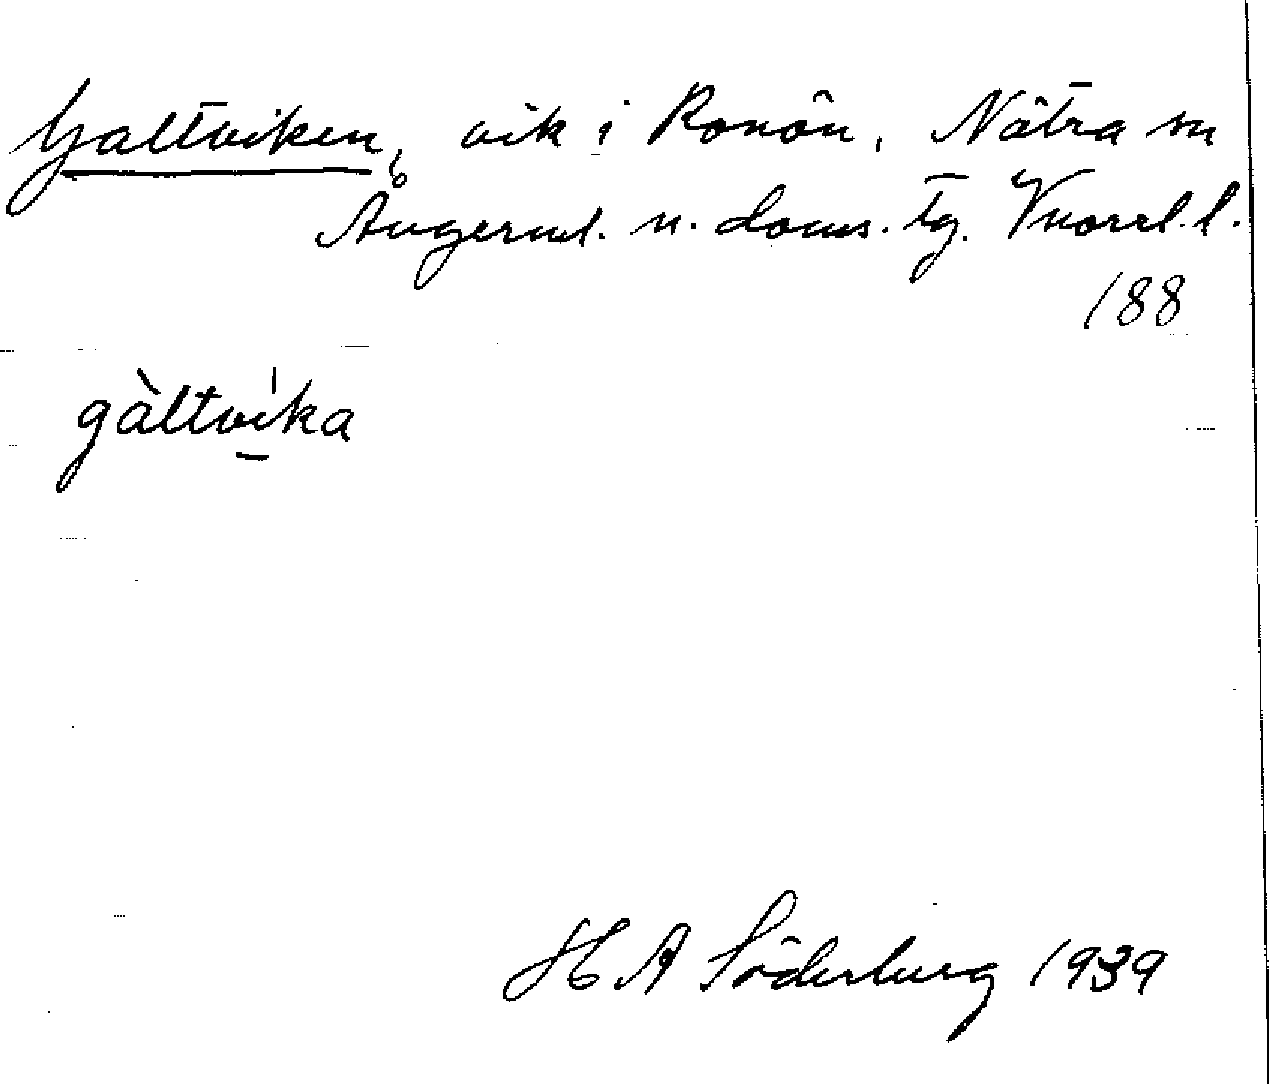 Galtviken, vik i Ronön, Nätra sn
Ångerml. n. doms. tg. Vnorrl. l.
188
gàltvi̠ka
H A Söderberg 1939